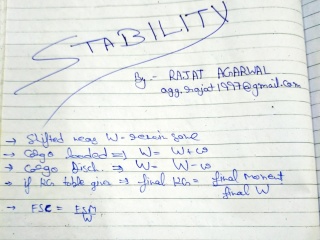 STABILITY
By:- RAJAT AGARWAL
agg.rajat1997@gmail.com
→ Shifted near W- remain same
→ Cargo loaded ⇒ W = W+w
→ Cargo Disch. ⇒ W = W-w
→ if KG table given ⇒ final KG = final Moment
final W
→ FSC = FSM
W